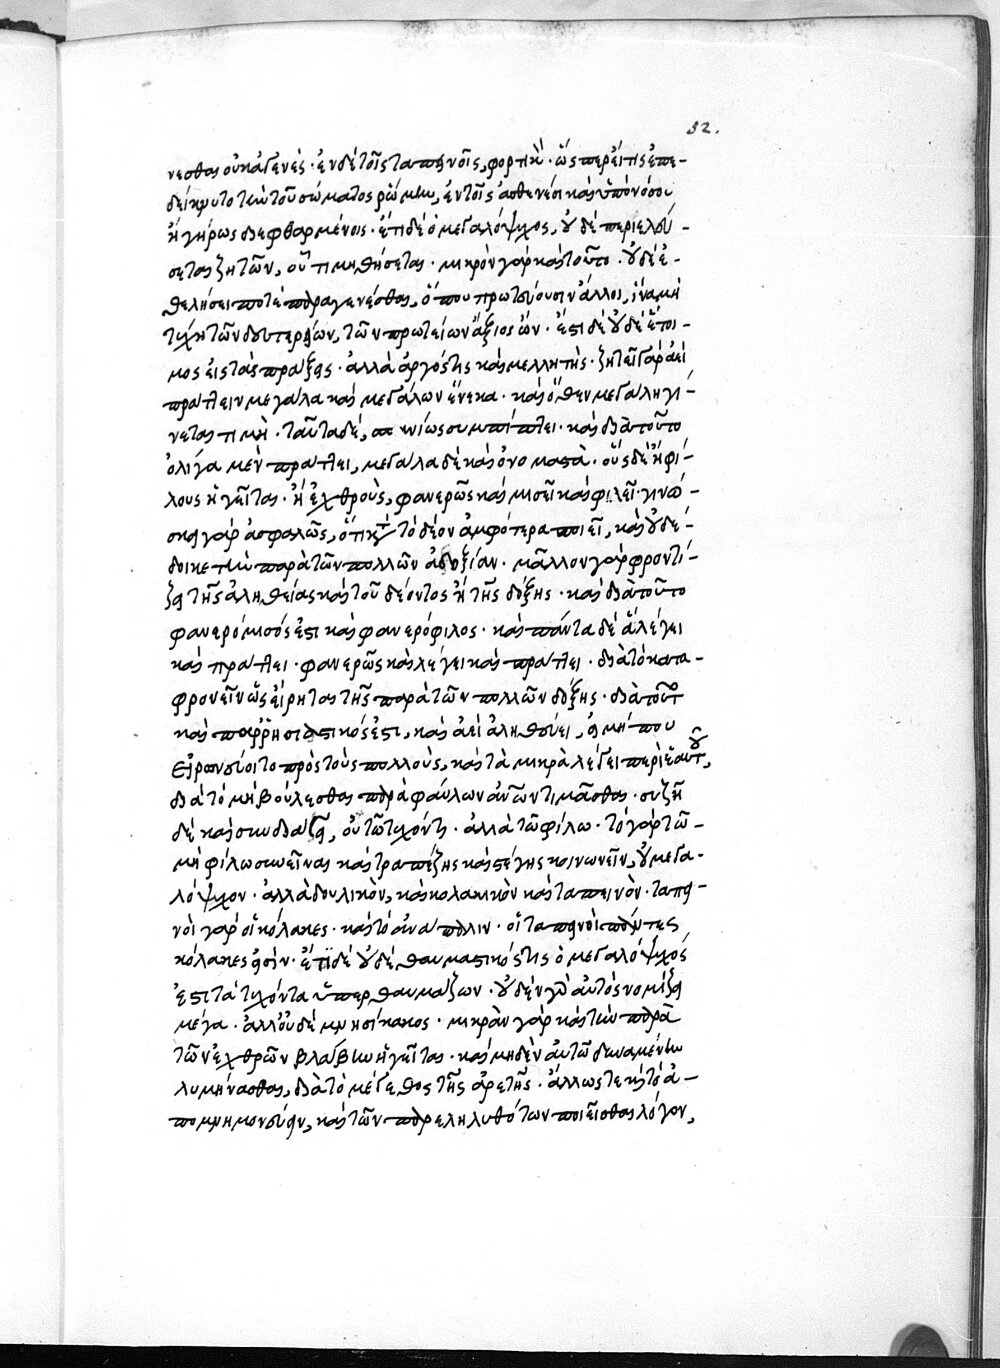 32.
νεσθαι οὐκ ἀγενές· ἐν δὲ τοῖς ταπεινοῖς, φορτικόν· ὥσπερ εἴ τις ἐπε-
δείκνυτο τὴν τοῦ σώματος ῥώμην, ἐν τοῖς ἀσθενέσι καὶ ὑπὸ νόσου
ἢ γήρως διεφθαρμένοις· ἔτι δὲ ὁ μεγαλόψυχος, οὐδὲ περιελεύ-
σεται ζητῶν, οὗ τιμηθήσεται· μικρὸν γὰρ καὶ τοῦτο· οὐδὲ ἐ-
θελήσει ποτὲ παραγενέσθαι, ὅπου πρωτεύουσιν ἄλλοι, ἵνα μὴ
τύχῃ τῶν δευτερείων, τῶν πρωτείων ἄξιος ὤν· ἔστι δὲ οὐδὲ ἕτοι-
μος εἰς τὰς πράξεις· ἀλλὰ ἀργός τις καὶ μελλητής· ζητεῖ γὰρ ἀεὶ
πράττειν μεγάλα καὶ μεγάλων ἕνεκα· καὶ ὅθεν μεγάλη γί-
νεται τιμή· ταῦτα δὲ, σπανίως συμπίπτει· καὶ διὰ τοῦτο
ὀλίγα μὲν πράττει, μεγάλα δὲ καὶ ὀνομαστά· οὓς δὲ ἢ φί-
λους ἡγεῖται· ἢ ἐχθροὺς, φανερῶς καὶ μισεῖ καὶ φιλεῖ· γινώ-
σκει γὰρ ἀσφαλῶς, ὅτι κατὰ τὸ δέον ἀμφότερα ποιεῖ, καὶ οὐ δέ-
δοικε τὴν παρὰ τῶν πολλῶν ἀδοξίαν· μᾶλλον γὰρ φροντί-
ζει τῆς ἀληθείας καὶ τοῦ δέοντος ἢ τῆς δόξης· καὶ διὰ τοῦτο
φανερόμισός ἐστι καὶ φανερόφιλος· καὶ πάντα δὲ ἃ λέγει
καὶ πράττει· φανερῶς καὶ λέγει καὶ πράττει· διὰ τὸ κατα-
φρονεῖν ὡς εἴρηται τῆς παρὰ τῶν πολλῶν δόξης· διὰ τοῦτο
καὶ παρρησιαστικός ἐστι, καὶ ἀεὶ ἀληθεύει, εἰ μή που
εἰρωνεύοιτο πρὸς τοὺς πολλοὺς, καὶ τὰ μικρὰ λέγει περὶ ἑαυτοῦ,
διὰ τὸ μὴ βούλεσθαι παρὰ φαύλων ἀνθρώπων τιμᾶσθαι· συζῇ
δὲ καὶ συνδιάζει, οὐ τῷ τυχόντι· ἀλλὰ τῷ φίλῳ· τὸ γὰρ τῷ
μὴ φίλῳ συνεῖναι καὶ τραπέζης καὶ στέγης κοινωνεῖν, οὐ μεγα-
λόψυχον· ἀλλὰ δουλικὸν, καὶ κολακικὸν καὶ ταπεινὸν· ταπει-
νοὶ γὰρ οἱ κόλακες· καὶ τὸ ἀνάπαλιν· οἱ ταπεινοὶ πάντες
κόλακες εἰσίν· ἔτι δὲ οὐδὲ θαυμαστικός τις ὁ μεγαλόψυχός
ἐστι τὰ τυχόντα ὑπερθαυμάζων· οὐδὲν γὰρ αὐτὸς νομίζει
μέγα· ἀλλ' οὐδὲ μνησίκακος· μικρὰν γὰρ καὶ τὴν παρὰ
τῶν ἐχθρῶν βλάβην ἡγεῖται· καὶ μηδὲν αὐτῷ δυναμένην
λυμήνασθαι, διὰ τὸ μέγεθος τῆς ἀρετῆς· ἄλλως τε καὶ τὸ ἀ-
πομνημονεύειν, καὶ τῶν παρεληλυθότων ποιεῖσθαι λόγον,